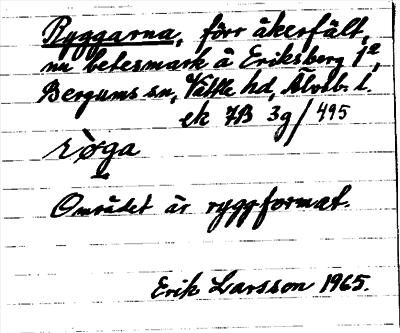 Ryggarna, förr åkerfält,
nu betesmark å Eriksberg 1²,
Bergums sn, Vättle hd, Älvsb. l.
ek 7B 3g/495
röga
Området är ryggformat.
Erik Larsson 1965.